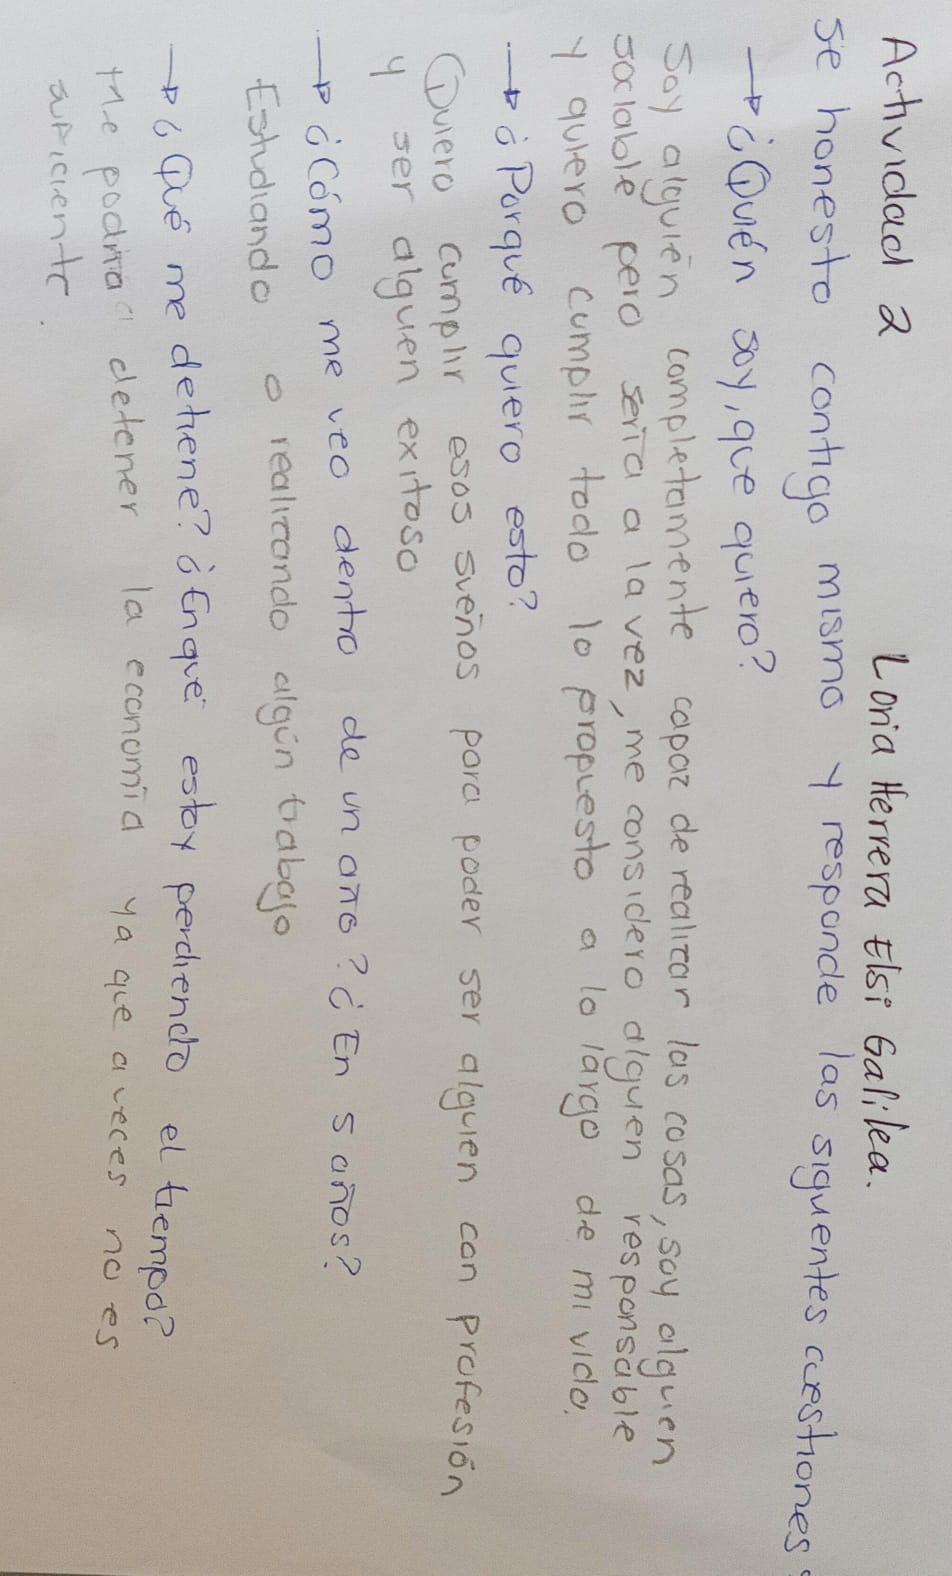 Actividad 2 Loria Herrera Elsi Galilea.
se honesto contigo mismo y responde las siguentes cuestiones:
→ ¿Quién soy, que quiero?
Soy alguién completamente capaz de realizar las cosas, soy alguien
sociable pero seria a la vez, me considero alguen responsable
y quiero cumplir todo lo propuesto a lo largo de mi vida.
→ ¿Porqué quiero esto?
Quiero cumplir esos sueños para poder ser alguien con profesión
y ser alguen exitoso
→ ¿Cómo me veo dentro de un año? ¿En 5 años?
Estudiando o realizando algún trabajo
→ ¿Qué me detiene? ¿Enque estoy perdiendo el tiempo?
Me podria detener la economía ya que aveces no es
suficiente.